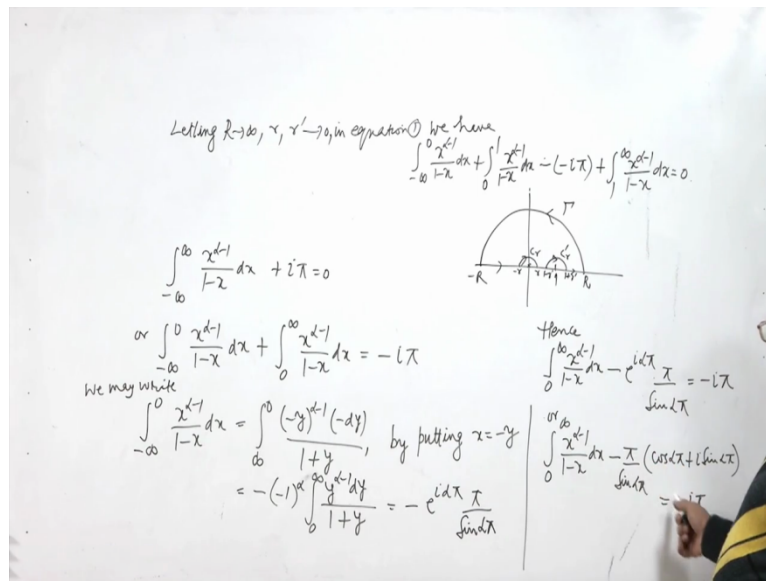 Letting R→∞, r, r'→0, in equation ① we have
∫_{-∞}^{0} x^{α-1}/(1-x) dx + ∫_{0}^{1} x^{α-1}/(1-x) dx - (-iπ) + ∫_{1}^{∞} x^{α-1}/(1-x) dx = 0
Γ
C_r C'_r
-R -r r 1-r' 1 1+r' R
∫_{-∞}^{∞} x^{α-1}/(1-x) dx + iπ = 0
or ∫_{-∞}^{0} x^{α-1}/(1-x) dx + ∫_{0}^{∞} x^{α-1}/(1-x) dx = -iπ
We may write
∫_{-∞}^{0} x^{α-1}/(1-x) dx = ∫_{∞}^{0} (-y)^{α-1} (-dy)/(1+y), by putting x=-y
= -(-1)^{α} ∫_{0}^{∞} y^{α-1} dy/(1+y) = -e^{iαπ} π/Sinαπ
Hence
∫_{0}^{∞} x^{α-1}/(1-x) dx - e^{iαπ} π/Sinαπ = -iπ
or
∫_{0}^{∞} x^{α-1}/(1-x) dx - π/Sinαπ (cosαπ + i Sinαπ)
= -iπ